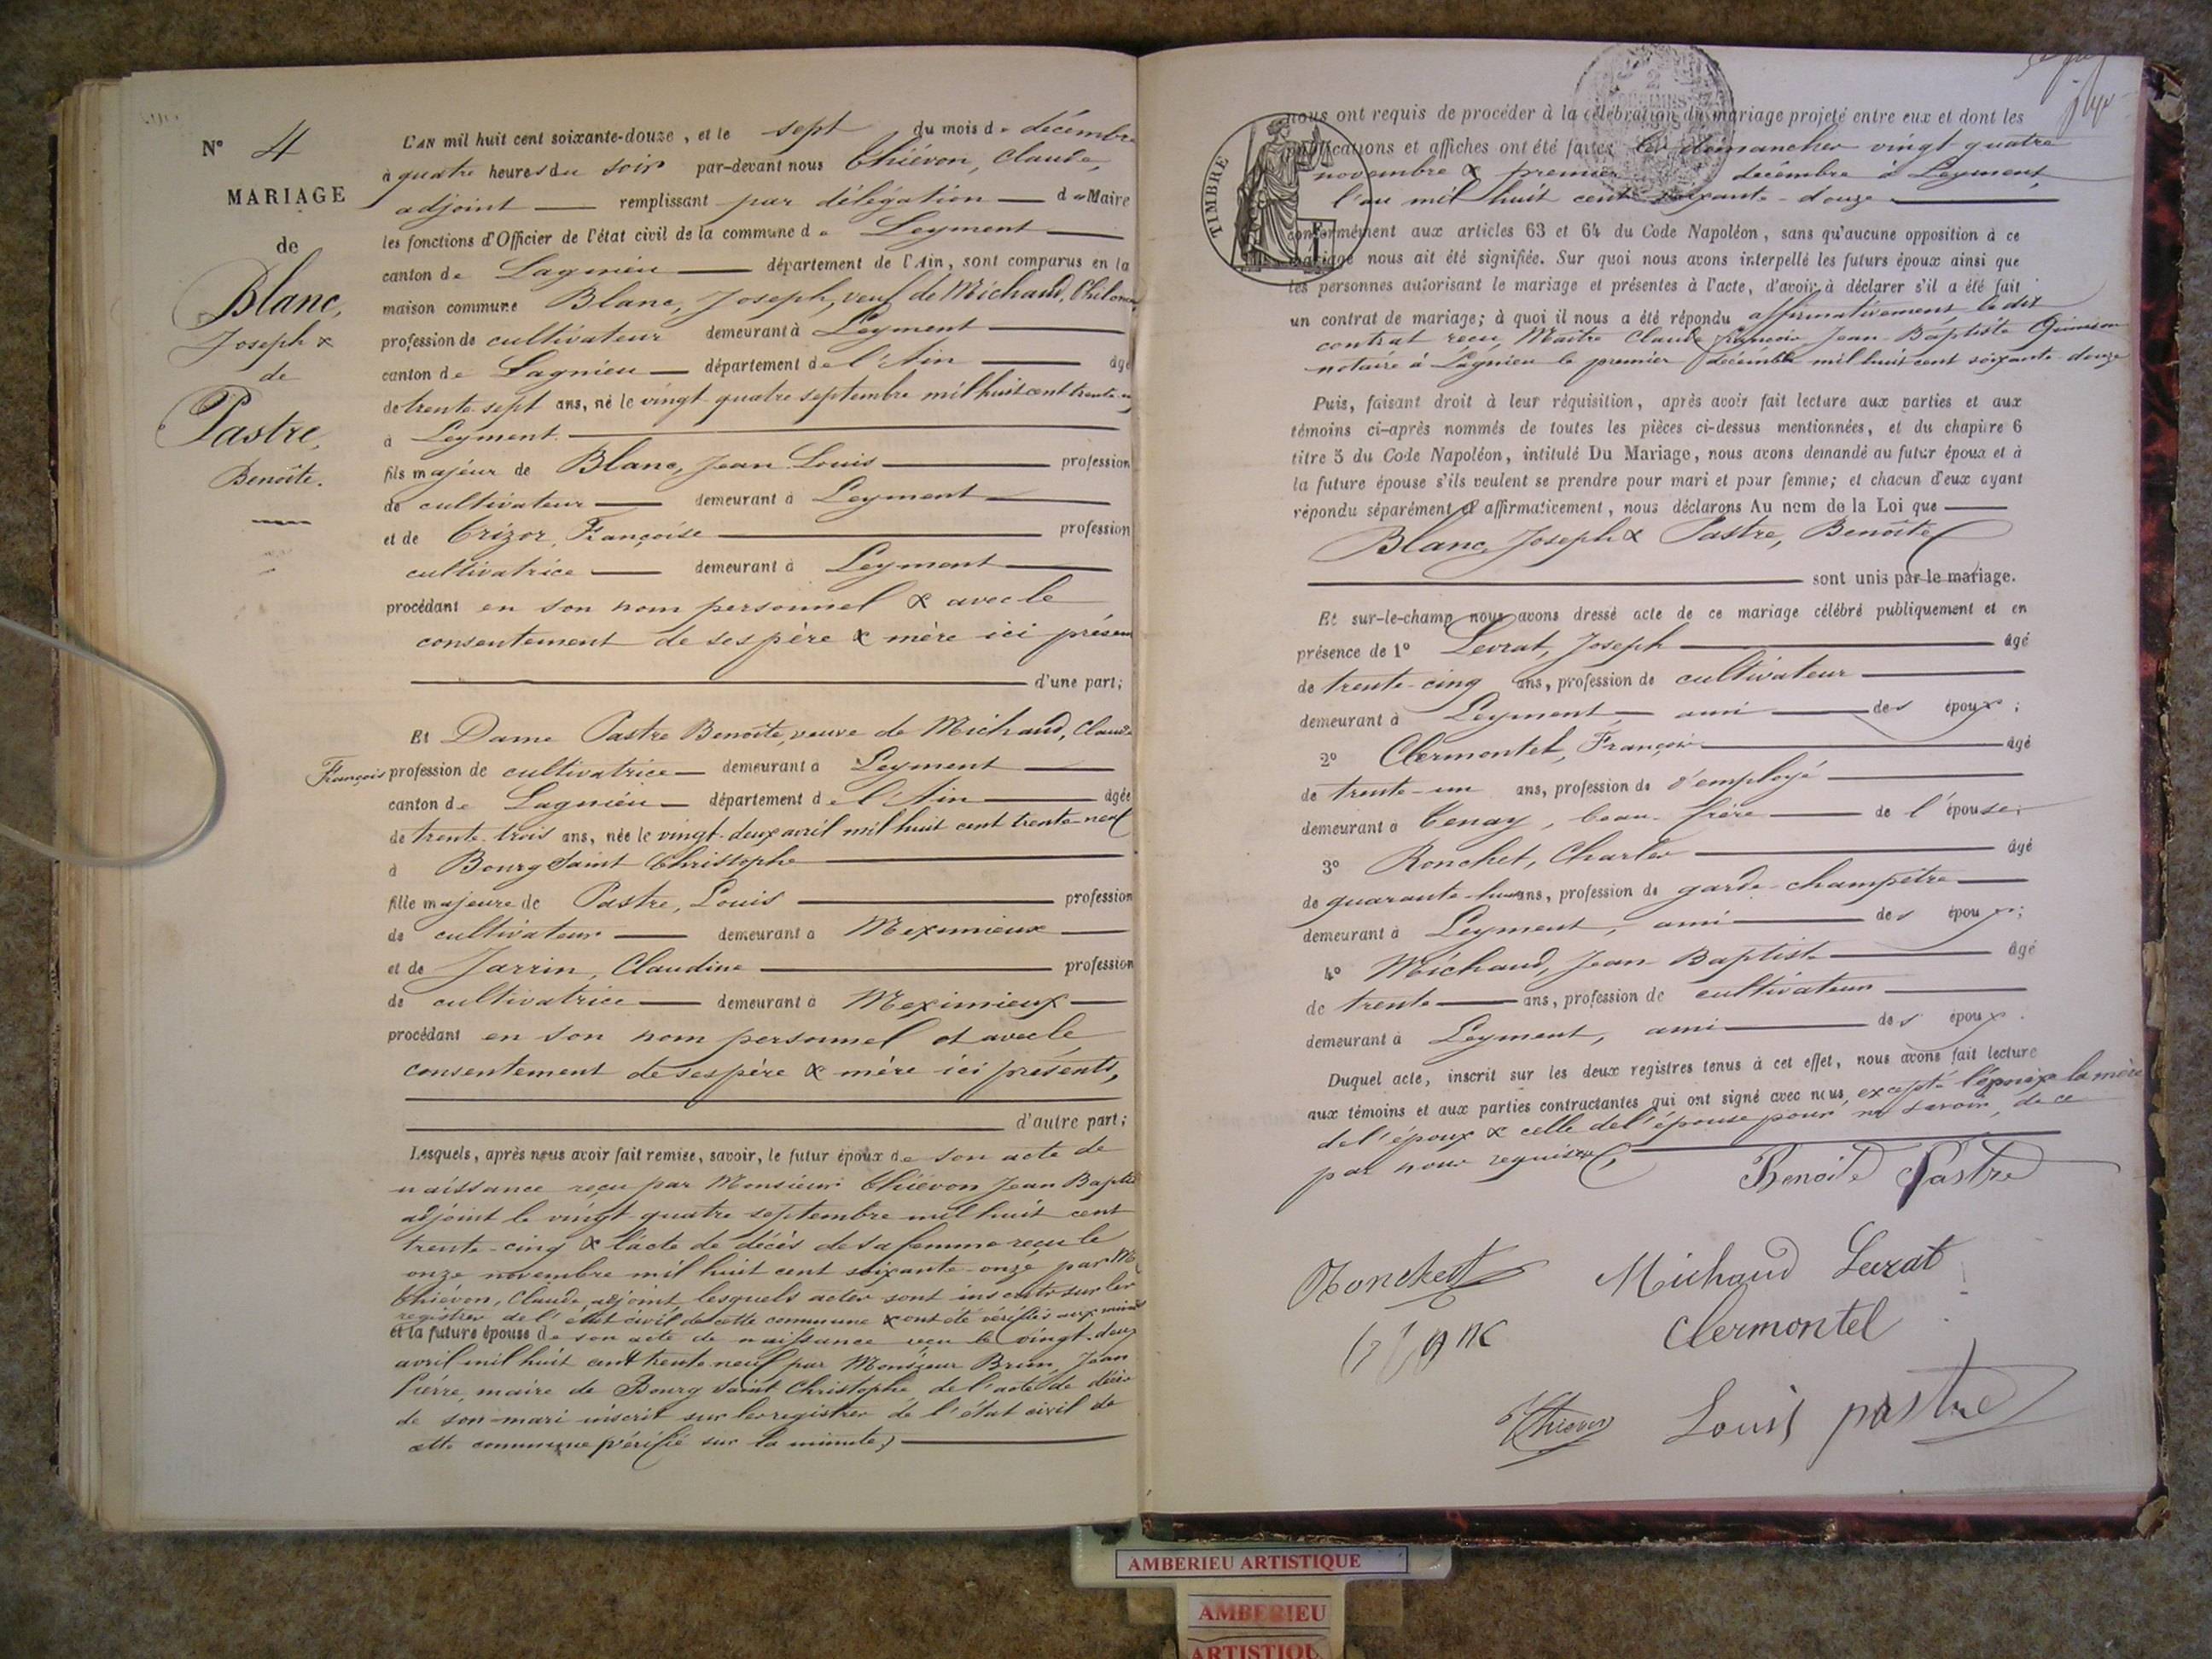 N° 4
MARIAGE
de
Blanc,
Joseph &
de
Pastre,
Benoîte.
L'AN mil huit cent soixante-douze, et le sept du mois de décembre
à quatre heures du soir par-devant nous Thiévon, Claude,
adjoint remplissant par délégation du Maire
les fonctions d'Officier de l'état civil de la commune de Leyment
canton de Lagnieu département de l'Ain, sont comparus en la
maison commune Blanc, Joseph, veuf de Michaud, Philomè
profession de cultivateur demeurant à Leyment
canton de Lagnieu département de l'Ain âgé
de trente-sept ans, né le vingt quatre septembre mil huit cent trente
à Leyment.
fils majeur de Blanc, Jean Louis profession
de cultivateur demeurant à Leyment
et de Trizor, Françoise profession
cultivatrice demeurant à Leyment
procédant en son nom personnel & avec le
consentement de ses père & mère ici présen
d'une part;
Et Dame Pastre Benoîte, veuve de Michaud, Claude
François profession de cultivatrice demeurant à Leyment
canton de Lagnieu département de l'Ain âgée
de trente-trois ans, née le vingt-deux avril mil huit cent trente-neuf
à Bourg Saint Christophe
fille majeure de Pastre, Louis profession
de cultivateur demeurant à Meximieux
et de Jarrin, Claudine profession
de cultivatrice demeurant à Meximieux
procédant en son nom personnel et avec le
consentement de ses père & mère ici présents,
d'autre part;
Lesquels, après nous avoir fait remise, savoir, le futur époux de son acte de
naissance reçu par Monsieur Thiévon Jean Baptis
adjoint le vingt quatre septembre mil huit cent
trente-cinq & l'acte de décès de sa femme reçu le
onze novembre mil huit cent soixante-onze par M
Thiévon, Claude, adjoint, lesquels actes sont inscrits sur les
registres de l'état civil de cette commune & ont été vérifiés aux minutes
et la future épouse de son acte de naissance reçu le vingt-deux
avril mil huit cent trente neuf par Monsieur Brun, Jean
Pierre, maire de Bourg Saint Christophe, de l'acte de décès
de son mari inscrit sur les registres de l'état civil de
cette commune vérifié sur la minute,
TIMBRE
2
nous ont requis de procéder à la célébration du mariage projeté entre eux et dont les
publications et affiches ont été faites les dimanches vingt quatre
novembre & premier décembre à Leyment
l'an mil huit cent soixante-douze
conformément aux articles 63 et 64 du Code Napoléon, sans qu'aucune opposition à ce
mariage nous ait été signifiée. Sur quoi nous avons interpellé les futurs époux ainsi que
les personnes autorisant le mariage et présentes à l'acte, d'avoir à déclarer s'il a été fait
un contrat de mariage; à quoi il nous a été répondu affirmativement, le dit
contrat reçu, Maitre Claude François Jean-Baptiste
notaire à Lagnieu le premier décembre mil huit cent soixante-douze
Puis, faisant droit à leur réquisition, après avoir fait lecture aux parties et aux
témoins ci-après nommés de toutes les pièces ci-dessus mentionnées, et du chapitre 6
titre 5 du Code Napoléon, intitulé Du Mariage, nous avons demandé au futur époux et à
la future épouse s'ils veulent se prendre pour mari et pour femme; et chacun d'eux ayant
répondu séparément & affirmativement, nous déclarons Au nom de la Loi que
Blanc, Joseph & Pastre, Benoîte
sont unis par le mariage.
Et sur-le-champ nous avons dressé acte de ce mariage célébré publiquement et en
présence de 1° Levrat, Joseph âgé
de trente-cinq ans, profession de cultivateur
demeurant à Leyment, ami des époux;
2° Clermontel, François âgé
de trente-un ans, profession de d'employé
demeurant à Tenay, beau-frère de l'épouse;
3° Ronchet, Charles âgé
de quarante-huit ans, profession de garde-champêtre
demeurant à Leyment, ami des époux;
4° Michaud, Jean Baptiste âgé
de trente ans, profession de cultivateur
demeurant à Leyment, ami des époux.
Duquel acte, inscrit sur les deux registres tenus à cet effet, nous avons fait lecture
aux témoins et aux parties contractantes qui ont signé avec nous, excepté l'époux la mère
de l'époux & celle de l'épouse pour ne savoir, de ce
par nous requises,
Benoite Pastre
Ronchet Michaud Levrat
Blanc Clermontel
Thievon Louis pastre
AMBERIEU ARTISTIQUE
AMBERIEU
ARTISTIQU